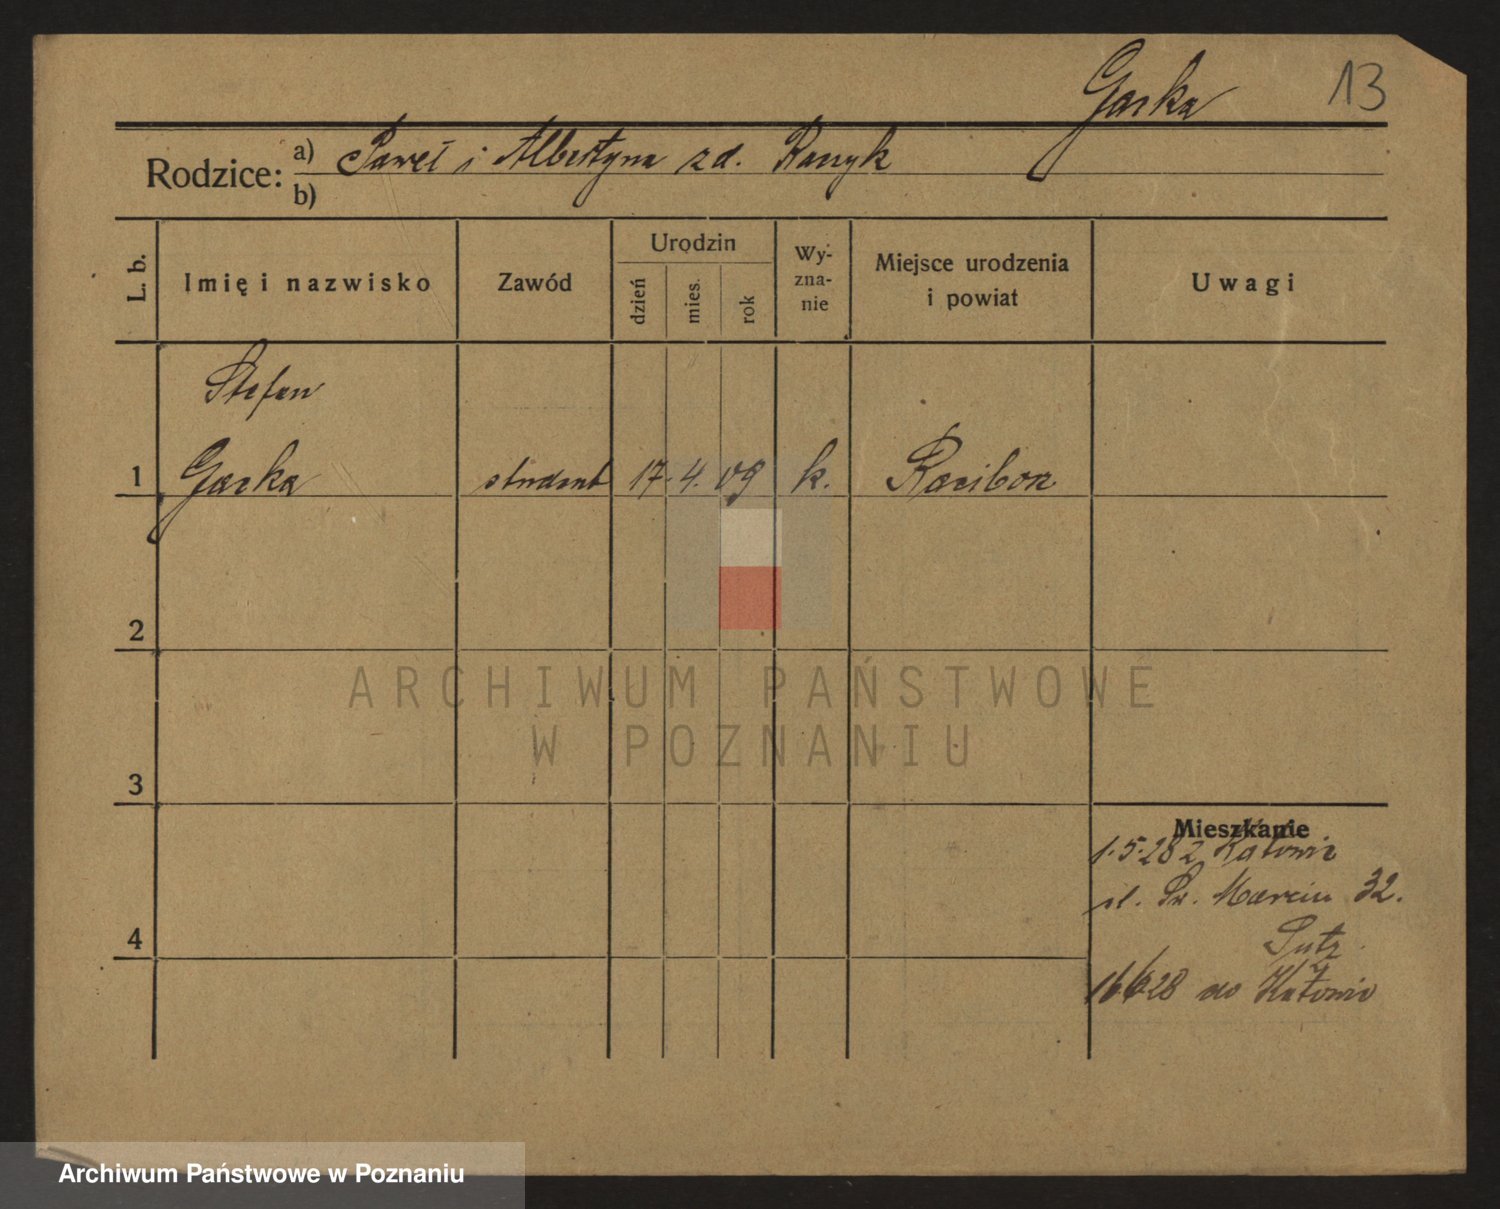 Garka 13
Rodzice: a) Paweł i Albertyna zd.
b)
L. b. Imię i nazwisko Zawód Urodzin dzień mies. rok Wyznanie Miejsce urodzenia i powiat Uwagi
Stefan
1 Garka student 17. 4. 09 k. Racibor
2
ARCHIWUM PAŃSTWOWE
W POZNANIU
3
Mieszkanie
1.5.28 z Katowic
ul. Św. Marcin 32.
4
28 do Katowic
Archiwum Państwowe w Poznaniu